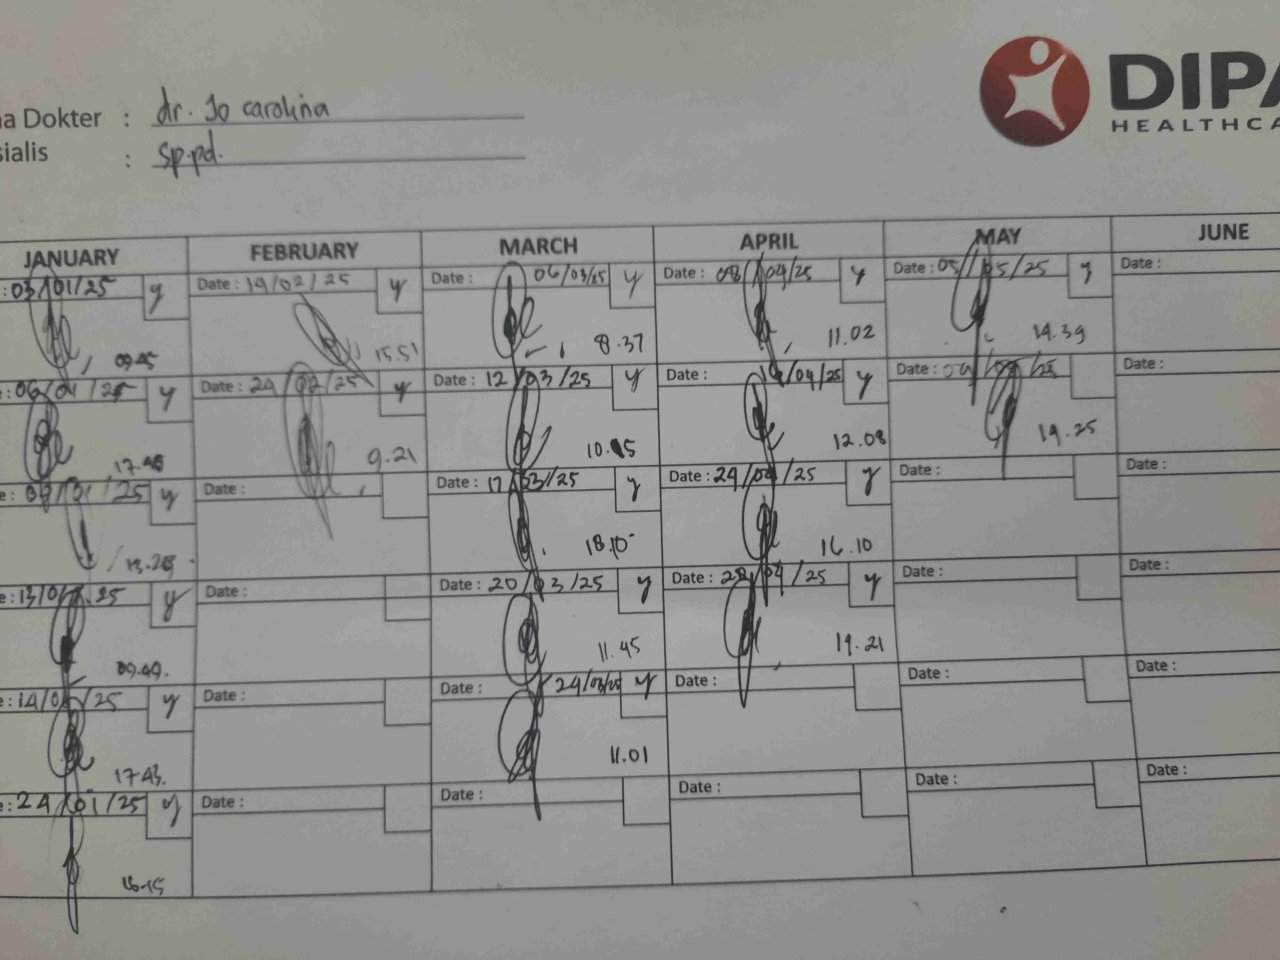 DIPA
HEALTHCA
a Dokter : dr. Jo carolina
sialis : sp.pd.
JANUARY FEBRUARY MARCH APRIL MAY JUNE
: 03/01/25 y Date : 19/02/25 y Date : 06/03/25 y Date : 08/04/25 y Date : 05/05/25 y Date :
09.45 15.51 8.37 11.02 14.39
e: 06/01/25 y Date : 24/02/25 y Date : 12/03/25 y Date : 14/04/25 y Date : Date :
17.45 9.21 10.15 12.08 19.25
e: 09/01/25 y Date : Date : 17/03/25 y Date : 24/04/25 y Date : Date :
18.10 16.10
e: 13/01/25 y Date : Date : 20/03/25 y Date : 28/04/25 y Date : Date :
09.49. 11.45 19.21
e: 14/01/25 y Date : Date : 24/03/25 y Date : Date : Date :
17.43. 11.01
e: 24/01/25 y Date : Date : Date : Date : Date :
16.15